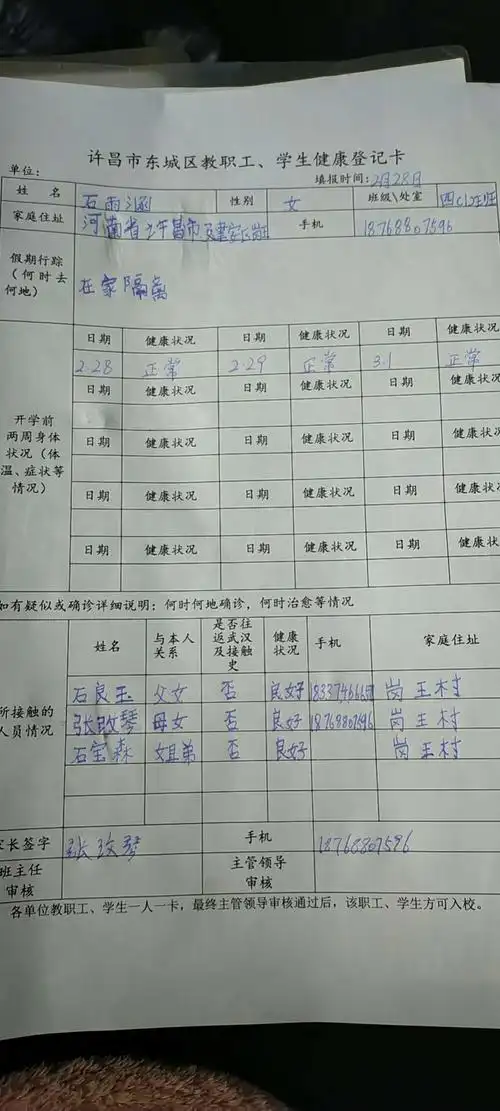 许昌市东城区教职工、学生健康登记卡
单位： 填报时间：2月28日
姓 名 石雨涵 性别 女 班级\处室 四(1)班
家庭住址 河南省许昌市建安区岗王 手机 18768807596
假期行踪（何时去何地） 在家隔离
开学前两周身体状况（体温、症状等情况）
日期 健康状况 日期 健康状况 日期 健康状况
2.28 正常 2.29 正常 3.1 正常
日期 健康状况 日期 健康状况 日期 健康状况
日期 健康状况 日期 健康状况 日期 健康状况
日期 健康状况 日期 健康状况 日期 健康状况
日期 健康状况 日期 健康状况 日期 健康状
如有疑似或确诊详细说明：何时何地确诊，何时治愈等情况
所接触的人员情况
姓名 与本人关系 是否往返武汉及接触史 健康状况 手机 家庭住址
石良玉 父女 否 良好 岗王村
张玫琴 母女 否 良好 18768807596 岗王村
石宝森 姐弟 否 良好 岗王村
家长签字 张玫琴 手机 18768807596
班主任审核 主管领导审核
各单位教职工、学生一人一卡，最终主管领导审核通过后，该职工、学生方可入校。